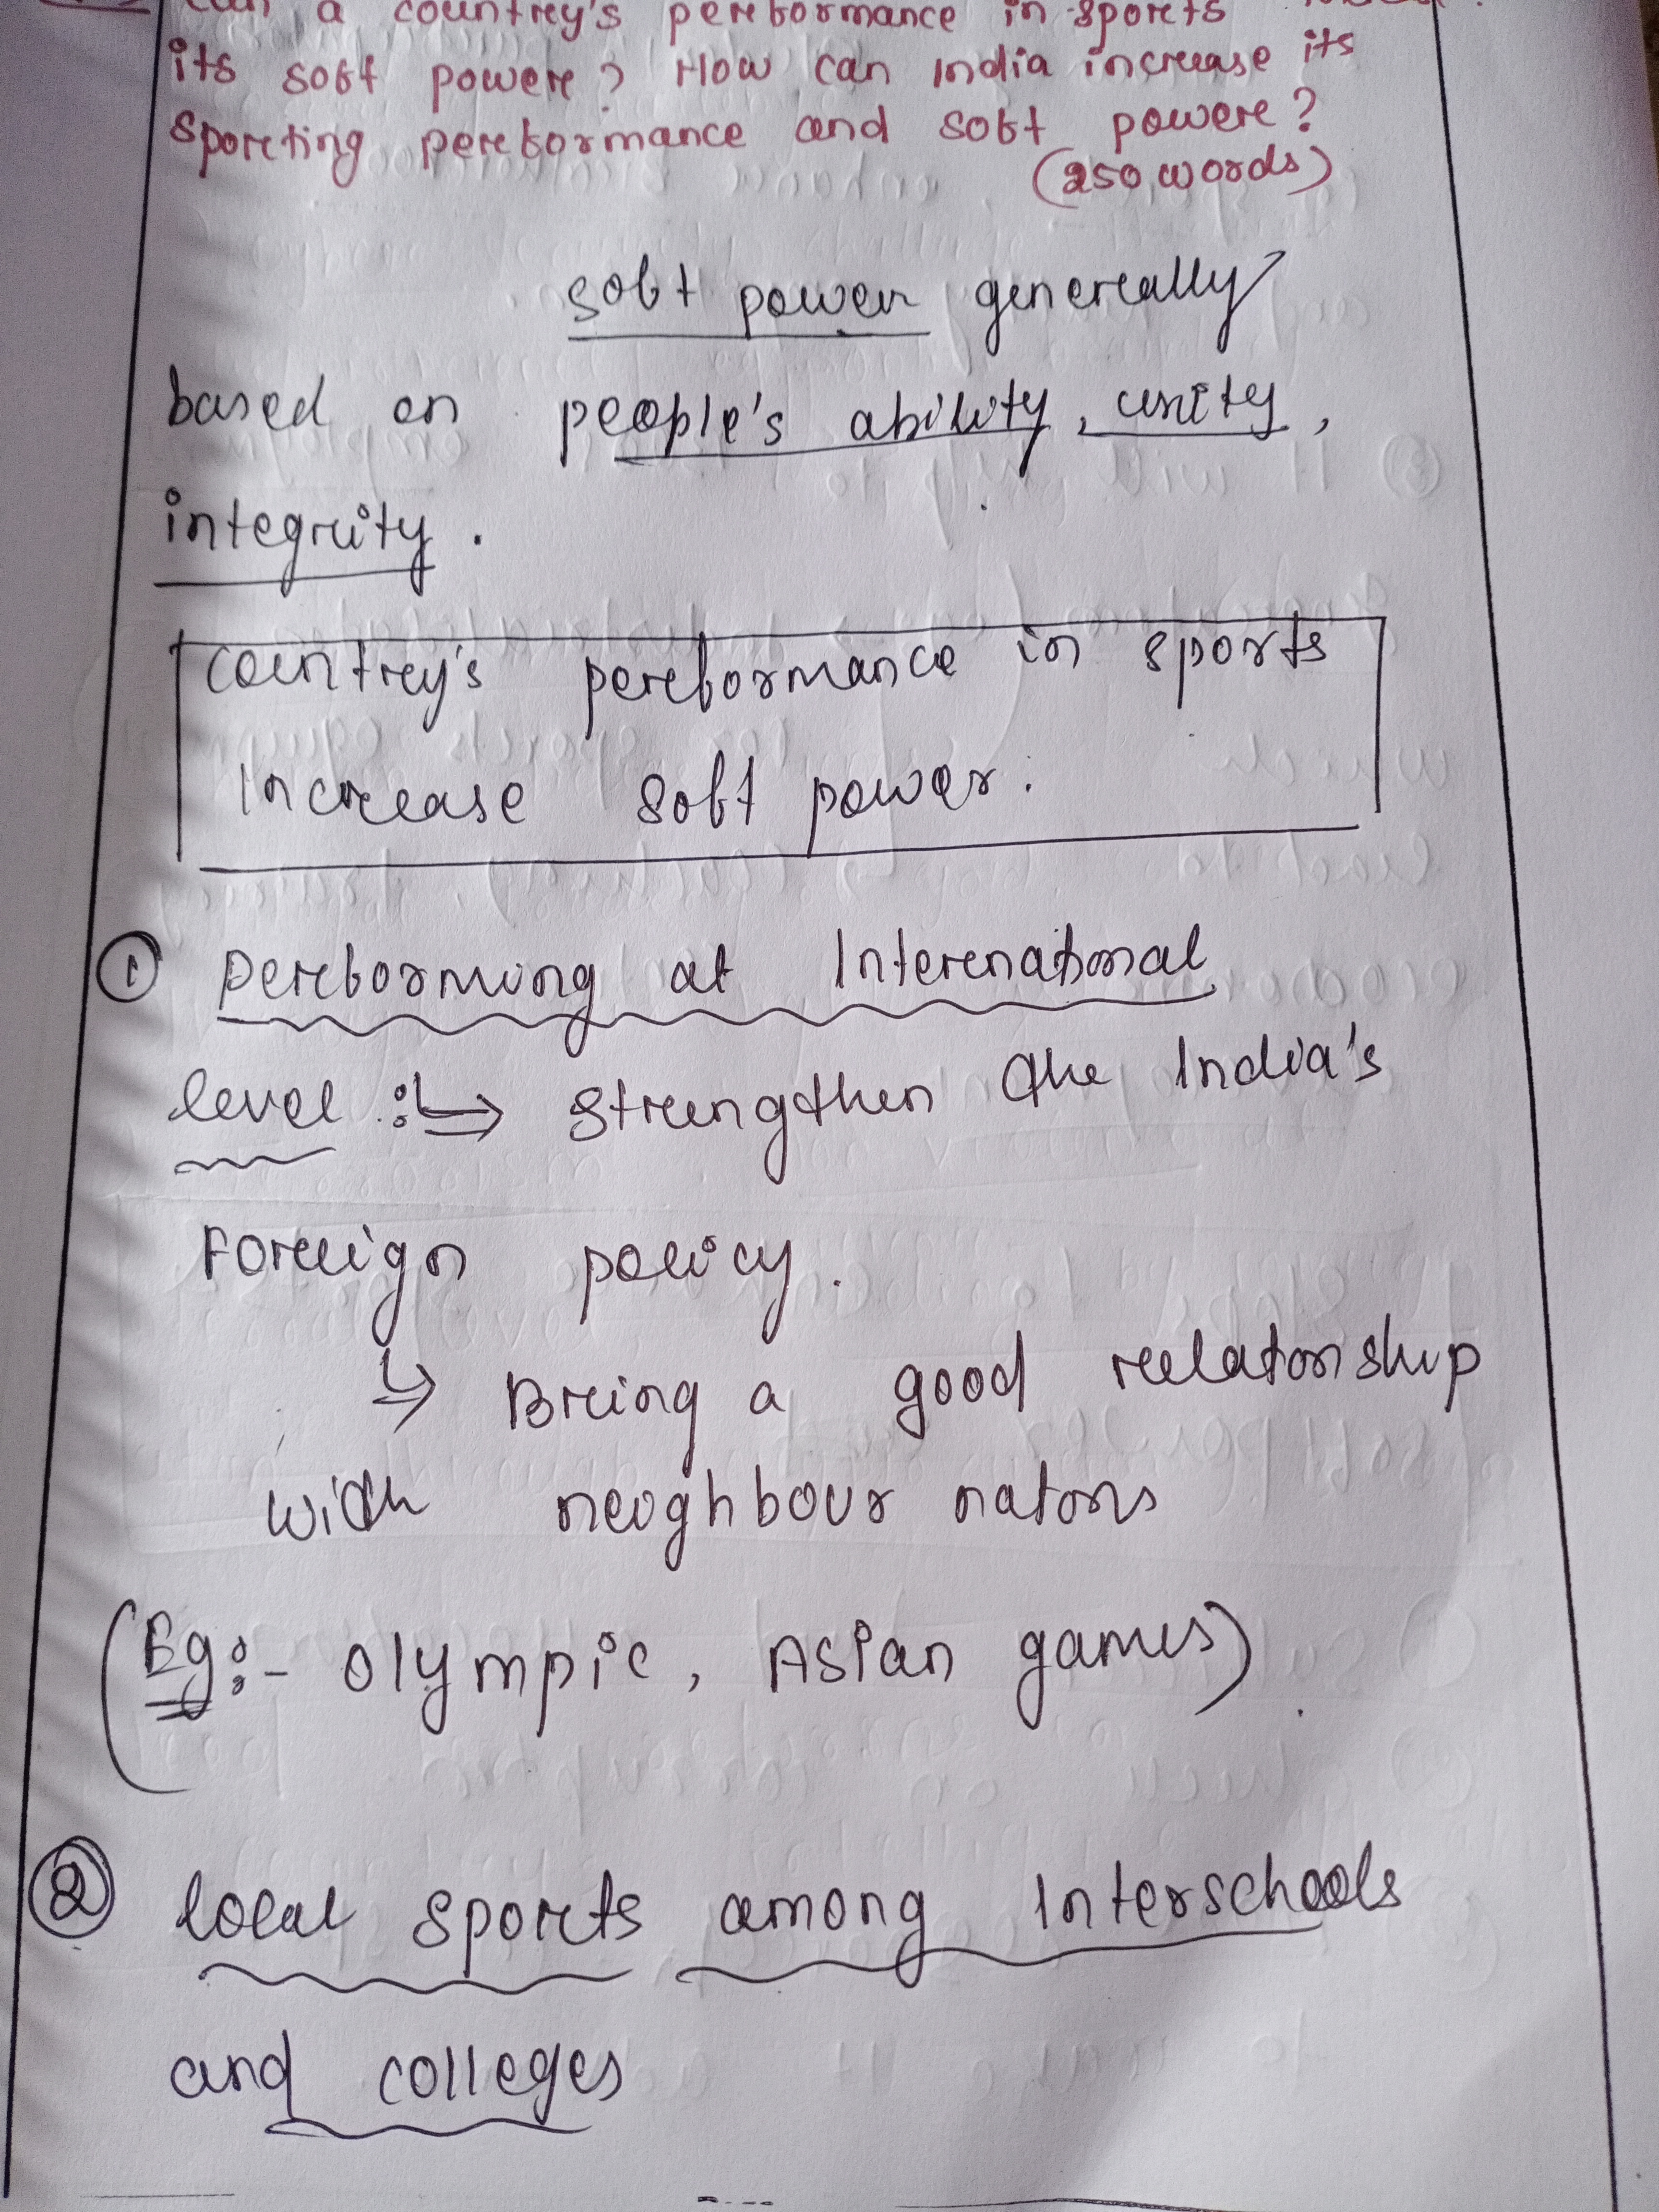 a country's performance in sports
its soft power? How can India increase its
sporting performance and soft power?
(250 words)
soft power generally
based on people's ability, unity,
integrity.
country's performance in sports
increase soft power.
① Performing at International
level :↳ strengthen the India's
Foreign policy.
↳ Bring a good relationship
with neighbour nations
(Eg:- Olympic, Asian games)
② local sports among Interschools
and colleges